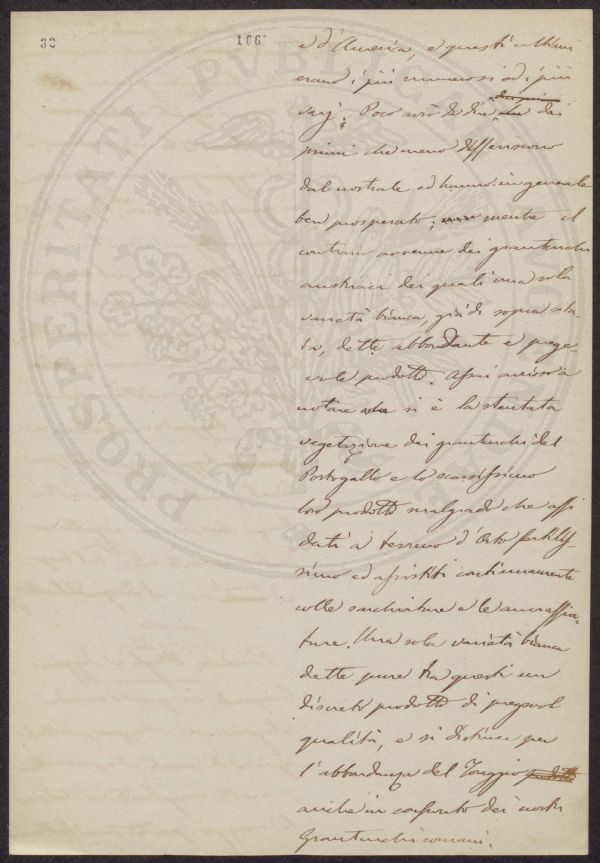 33 166
e d'America, e questi ultimi
erano i più numerosi ed i più
varj. Poco avrò da dire dei
primi che meno differiscono
dal nostrale ed hanno in generale
ben prosperato; mentre il
contrario avvenne dei granturchi
austriaci dei quali una sola
varietà bianca, già di sopra cita-
ta, dette abbondante e prege-
vole prodotto. Assai curioso a
notare si è la stentata
vegetazione dei granturchi del
Portogallo e lo scarsissimo
loro prodotto malgrado che affi
dati a terreno d'Orto fertilis-
simo ed assistiti continuamente
colle sarchiature e le annaffia-
ture. Una sola varietà bianca
dette pure tra questi un
discreto prodotto di pregevol
qualità, e si distinse per
l'abbondanza del foraggio prodotto
anche in confronto dei nostri
Granturchi comuni.
PROSPERITATI PUBLICAE